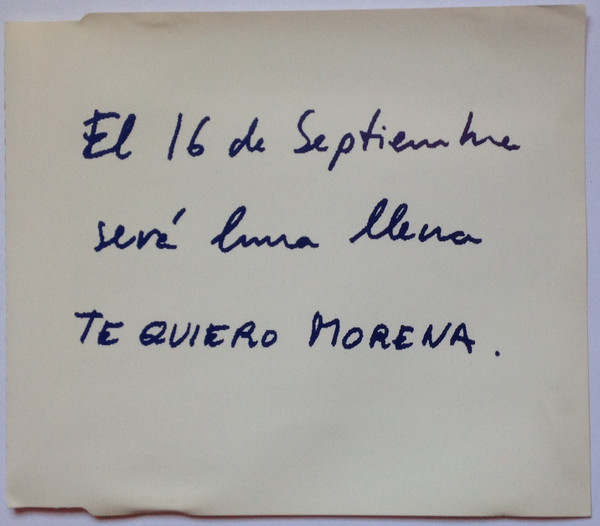 El 16 de Septiembre
será luna llena
TE QUIERO MORENA.